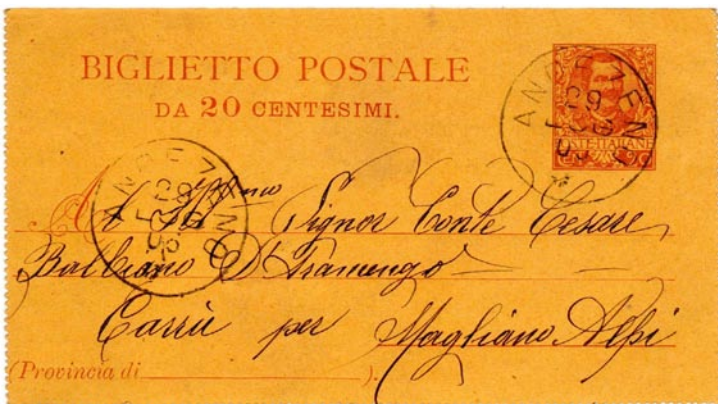 BIGLIETTO POSTALE
DA 20 CENTESIMI.
ANDEZENO
29
LUG
03
POSTE ITALIANE
20
ANDEZENO
29
LUG
03
Al Ill.mo Signor Conte Cesare
Balbiano D'Aramengo
Carrù per Magliano Alpi
(Provincia di ).